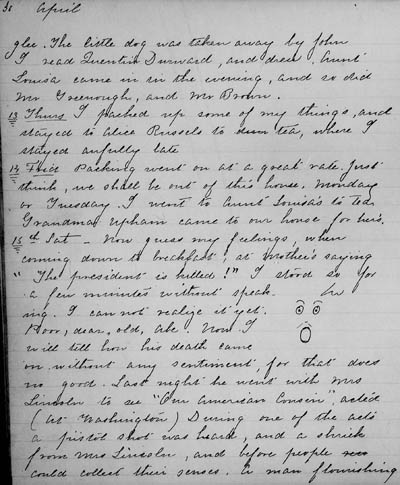 38 April
glee. The little dog was taken away by John
I read Quentin Durward, and drew. Aunt
Louisa came in in the evening, and so did
Mr Greenough, and Mr Brown.
13 Thurs I packed up some of my things, and
stayed to Alice Russels to tea, where I
stayed awfully late
14 Frid Packing went on at a great rate. Just
think, we shall be out of this house. Monday
or Tuesday. I went to Aunt Louisa's to tea.
Grandma Upham came to our house for hers.
15th Sat - Now guess my feelings, when
coming down to breakfast, at Mother's saying
"The president is killed!" I stood so for
a few minutes without speak-
ing. I can not realize it yet.
Poor, dear, old, Abe. Now I
will tell how his death came
on without any sentiment, for that does
no good. Last night he went with Mrs
Lincoln to see "Our American Cousin", acted
(At Washington) During one of the acts
a pistol shot was heard, and a shriek
from Mrs Lincoln, and before people
could collect their senses. A man flourishing